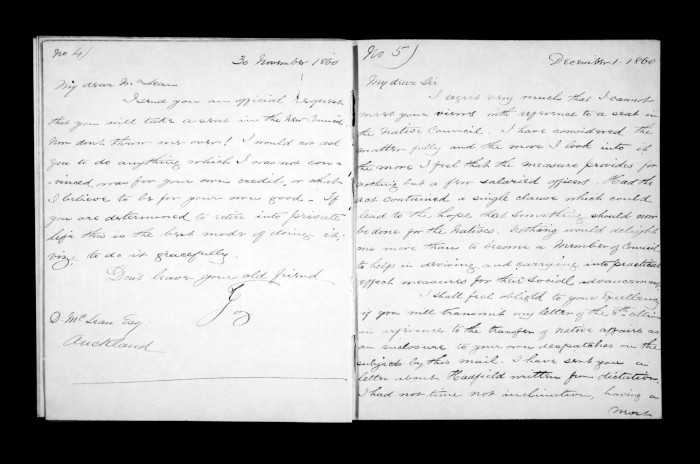 No 4)
30 November 1860
My dear McLean
I send you an official request
that you will take a seat in the New Council.
Now don't throw me over! I would not ask
you to do anything which I was not con-
vinced was for your own credit, or what
I believe to be for your own good. If
you are determined to retire into private
life this is the best mode of doing it,
viz, to do it gracefully.
Don't leave your old friend
D. McLean Esq
Auckland
No 5)
December 1. 1860
My dear Sir
I regret very much that I cannot
meet your views with reference to a seat in
the Native Council. I have considered the
matter fully and the more I look into it
the more I feel that the measure provides for
nothing but a few salaried officers. Had the
act contained a single clause which could
lead to the hope that something should now
be done for the Natives. Nothing would delight
me more than to become a Member of Council
to help in devising and carrying into practical
effect measures for their social advancement
I shall feel obliged to your Excellency
if you will transmit my letter of the 8th ultimo
in reference to the transfer of native affairs as
an enclosure to your own despatches on the
subject by this mail. I have sent you a
letter about Hadfield written from dictation.
I had not time not inclination, having a
most